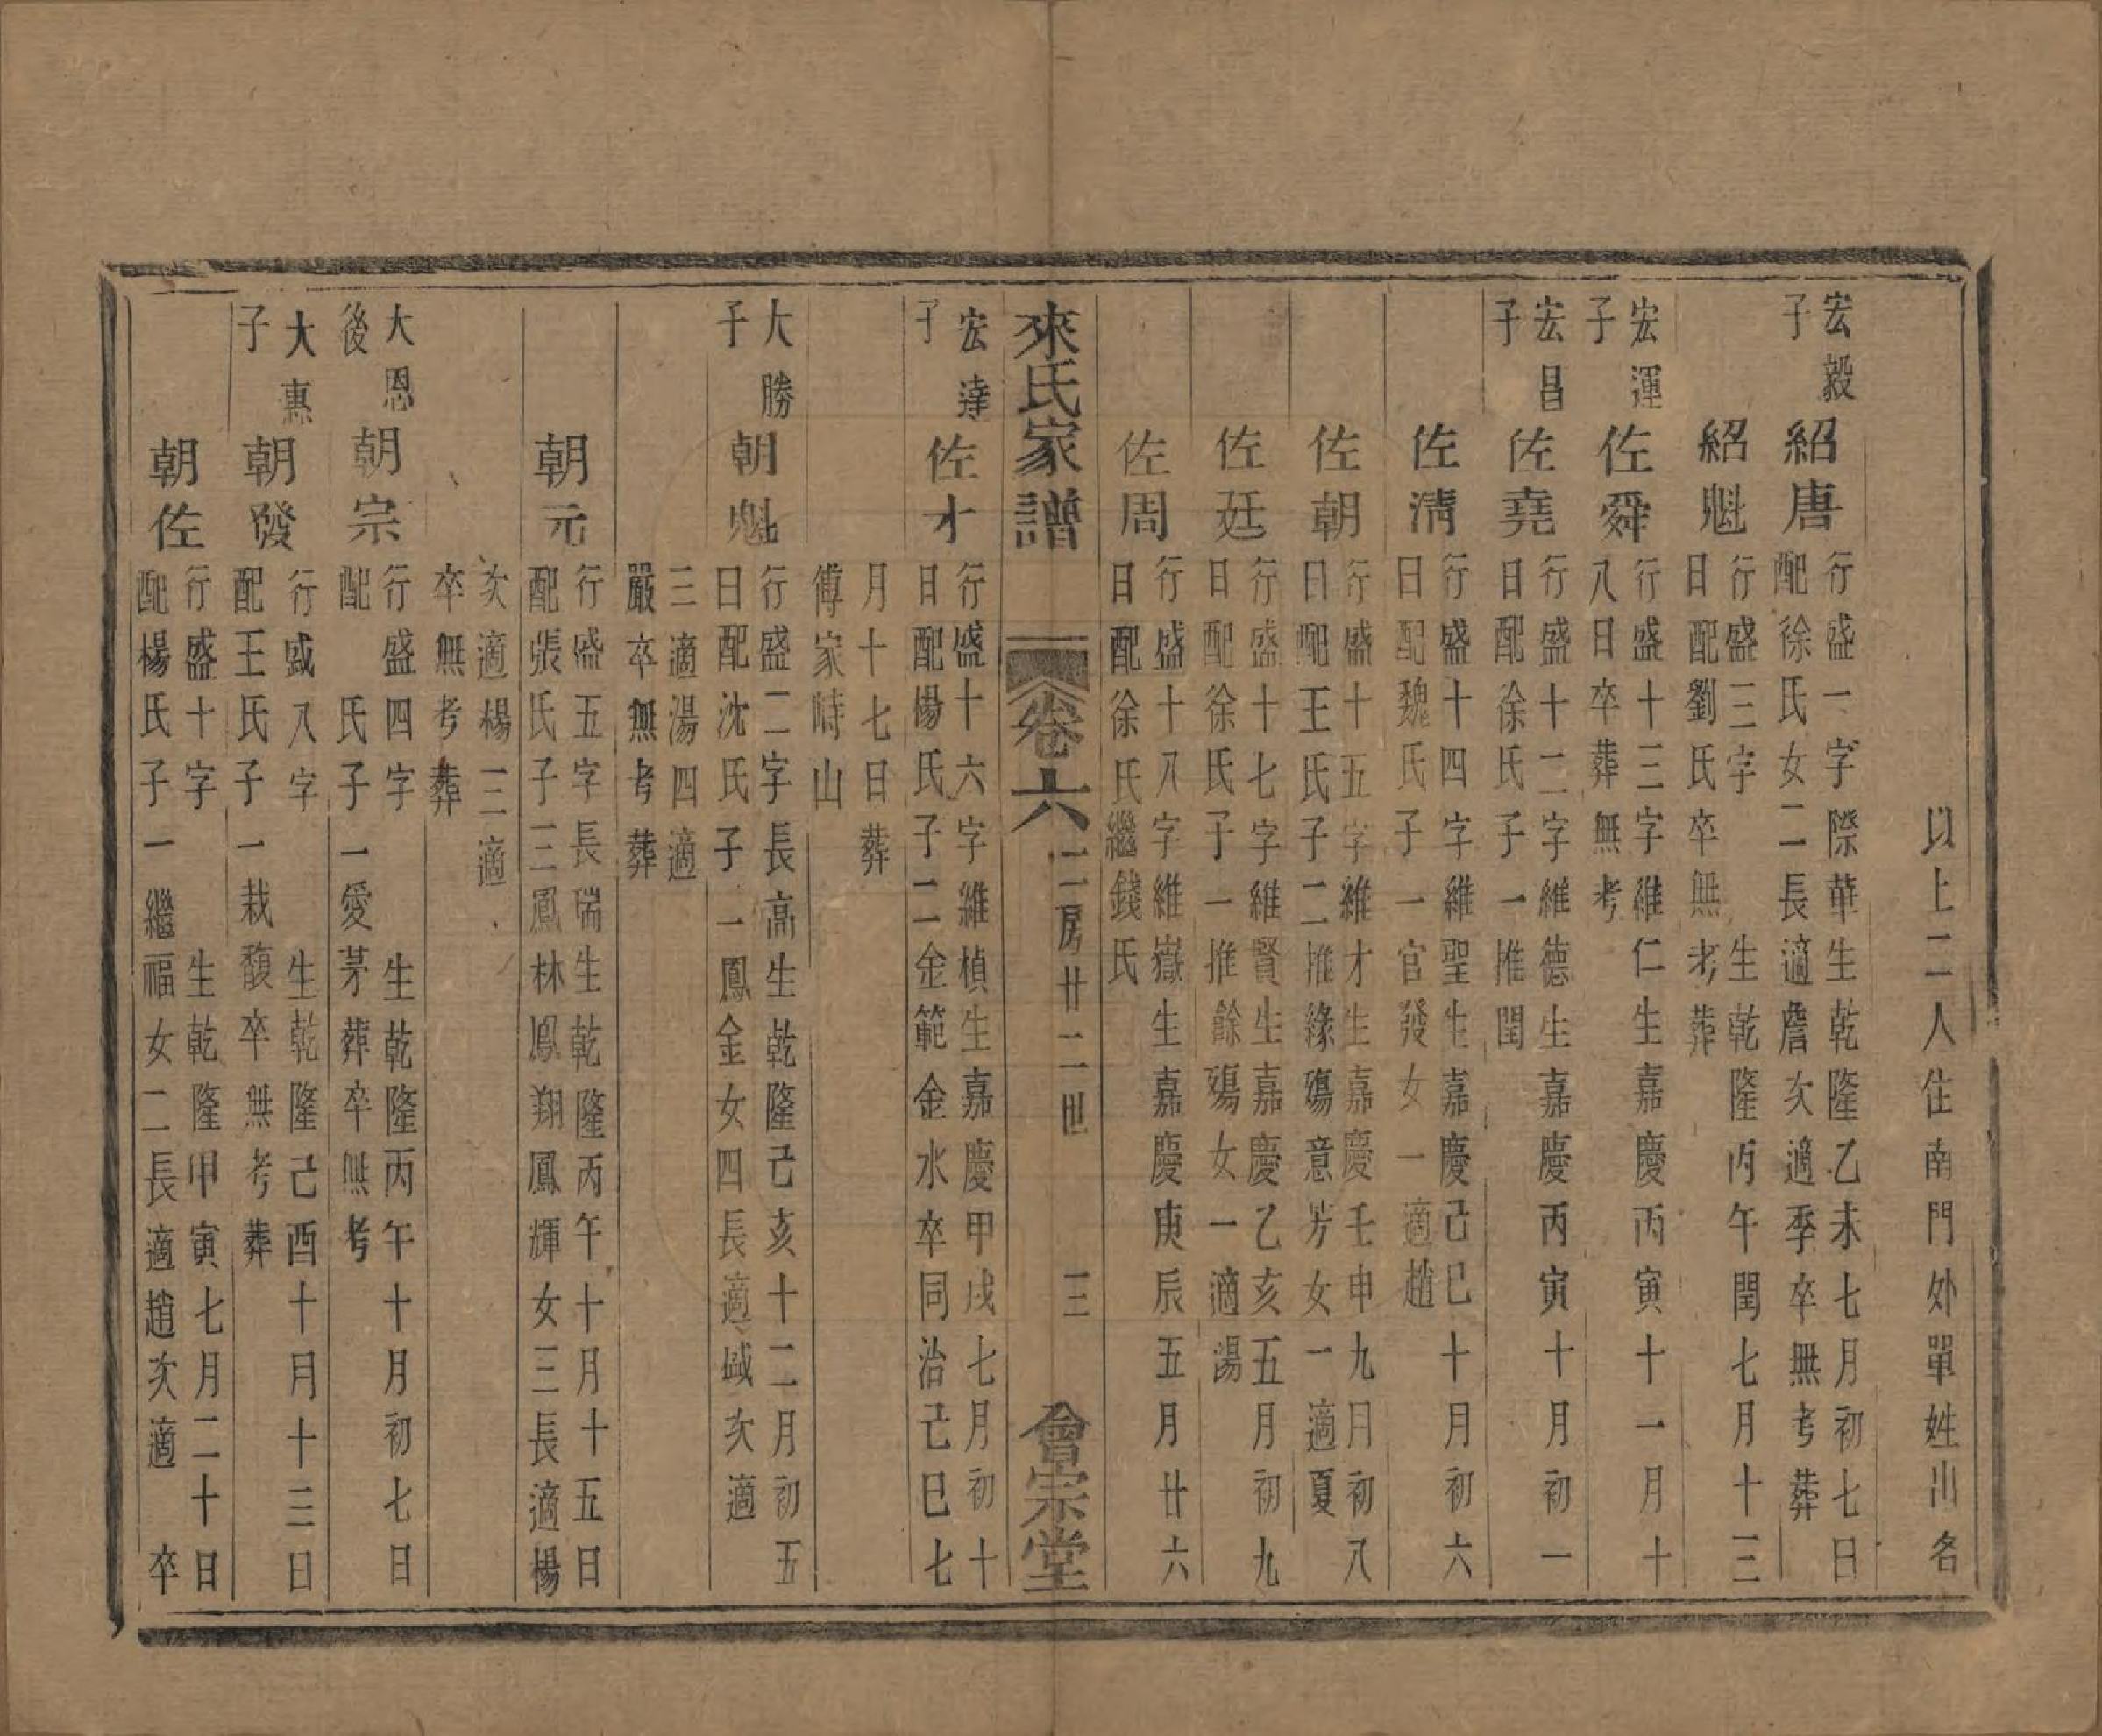 以上二人住南門外單姓出名
宏毅
子
紹唐
行盛一字際華生乾隆乙未七月初七日
配徐氏女二長適詹次適季卒無考葬
紹魁
行盛三字 生乾隆丙午閏七月十三
日配劉氏卒無考葬
宏運
子
佐舜
行盛十三字維仁生嘉慶丙寅十一月十
八日卒葬無考
宏昌
子
佐堯
行盛十二字維德生嘉慶丙寅十月初一
日配徐氏子一推閏
佐清
行盛十四字維聖生嘉慶己巳十月初六
日配魏氏子一官發女一適趙
佐朝
行盛十五字維才生嘉慶壬申九月初八
日配王氏子二推緣殤意芳女一適夏
佐廷
行盛十七字維賢生嘉慶乙亥五月初九
日配徐氏子一推餘殤女一適湯
佐周
行盛十八字維嶽生嘉慶庚辰五月廿六
日配徐氏繼錢氏
來氏家譜 卷六 二房廿二世 三 會宗堂
宏達
子
佐才
行盛十六字維楨生嘉慶甲戌七月初十
日配楊氏子二金範金水卒同治己巳七
月十七日葬
傅家峙山
大勝
子
朝魁
行盛二字長高生乾隆己亥十二月初五
日配沈氏子一鳳金女四長適城次適
三適湯四適
嚴卒無考葬
朝元
行盛五字長瑞生乾隆丙午十月十五日
配張氏子三鳳林鳳翔鳳輝女三長適楊
次適楊三適
卒無考葬
大恩
後
朝宗
行盛四字 生乾隆丙午十月初七日
配 氏子一愛茅葬卒無考
大惠
子
朝發
行盛八字 生乾隆己酉十月十三日
配王氏子一栽馥卒無考葬
朝佐
行盛十字 生乾隆甲寅七月二十日
配楊氏子一繼福女二長適趙次適 卒